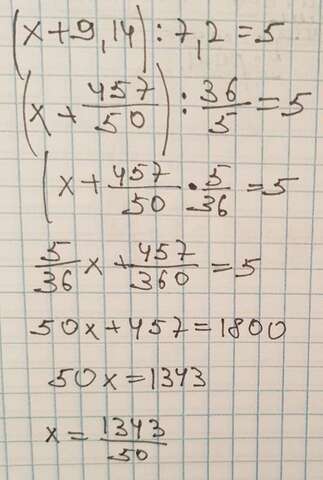 (x+9,14):7,2=5
(x+457/50):36/5=5
(x+457/50·5/36=5
5/36x+457/360=5
50x+457=1800
50x=1343
x=1343/50